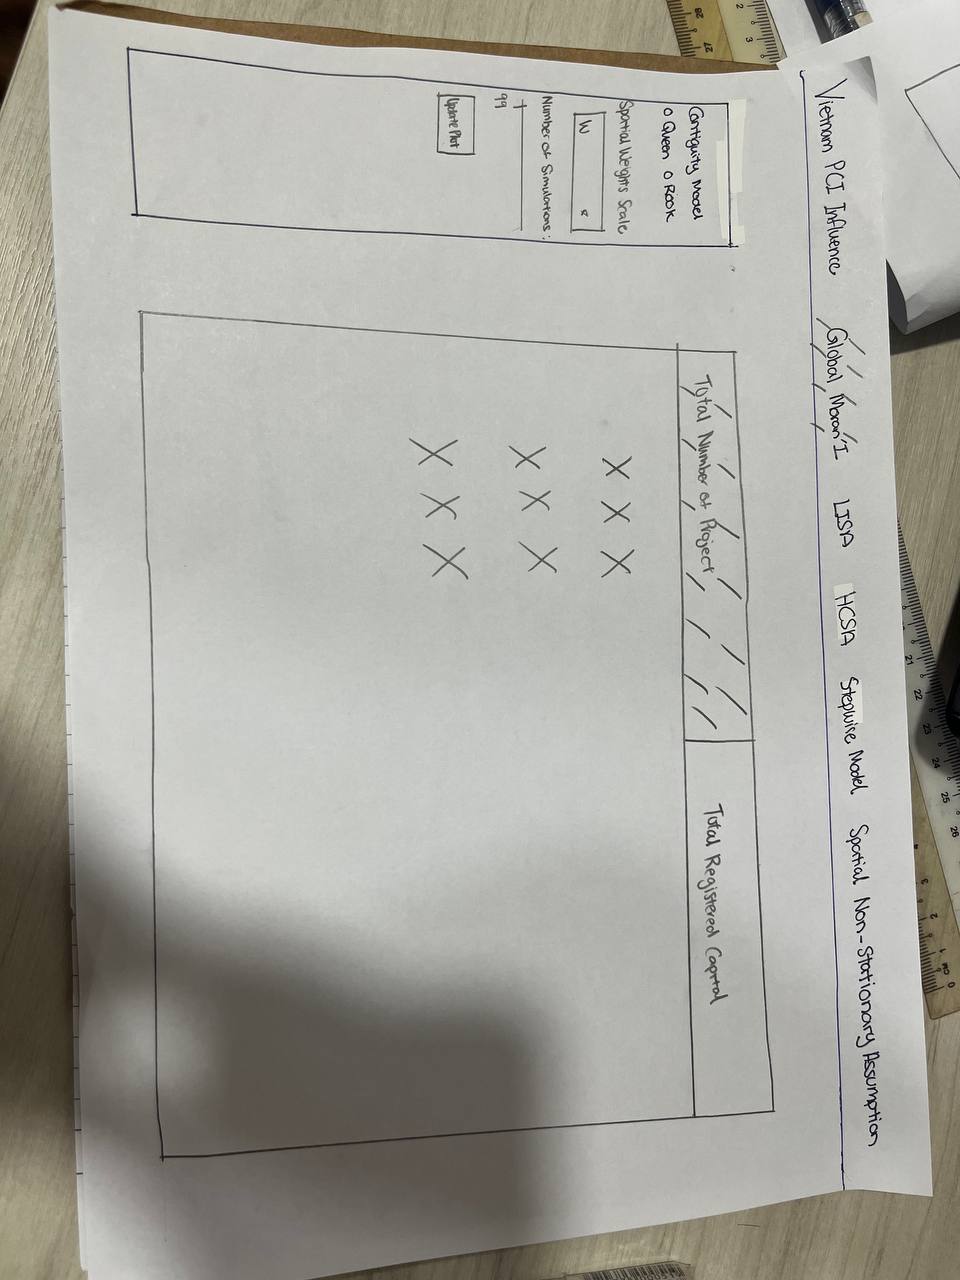 Vietnam PCI Influence Global Moran'I LISA HCSA Stepwise Model Spatial Non-Stationary Assumption
Contiguity Model
o Queen o Rook
Spatial Weights Scale
W
Number of Simulations:
99
Update Plot
Total Number of Project
Total Registered Capital
X X X
X X X
X X X
21 22 23 24 25 26
0 CM 1 2 3
2 3
28 27